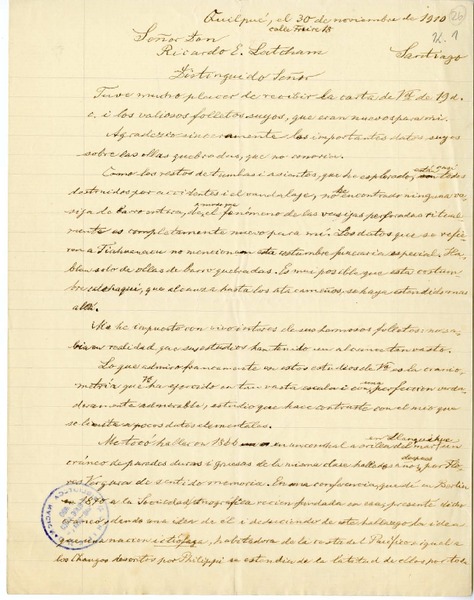 Quilpué, el 30 de noviembre de 1910
calle Freire 18
Señor Don
Ricardo E. Latcham
Santiago
Distinguido Señor
Tuve mucho placer de recibir la carta de Vd. de 19 d.
c. i los valiosos folletos suyos, que eran nuevos para mi.
Agradezco sinceramente los importantes datos suyos
sobre las ollas quebradas, que no conocia.
Como los restos de tumbas i asientos, que he explorado, están casi todos
destruidos por accidentes i el vandalaje, no he encontrado ninguna va-
sija de barro entera, de el fenómeno de las vasijas perforadas ritual-
mente es completamente nuevo para mi. Los datos que se refie-
ren a Tiahuanacu no mencionan esta costumbre funeraria especial. Ha-
blan solo de ollas de barro quebradas. Es mui posible que esta costum-
bre calchaquí, que alcanza hasta los atacameños, se haya estendido mas
allá.
Me he impuesto con vivo interes de sus famosos folletos: no sa-
bia en realidad que sus estudios han tenido un alcance tan vasto.
Lo que admiro francamente en estos estudios de Vd. es la cranio-
metria que Vd. ha ejercido en tan vasta escala i con una perfeccion verda-
deramente admirable, estudio que hace contraste con el mio que
se limita a pocos datos elementales.
Me tocó hallar en 1866 en un conchal a orilla del mar en
cráneo de paredes duras i gruesas de la misma clase hallado despues por
Vergara de sentido memoria. En una conferencia, que dí en Berlin
en 1870 a la Sociedad Etnográfica recien fundada en esa, presenté dicho
craneo, dando una idea de él i deduciendo de este hallazgo la idea
que una nacion ictiófaga, habitadora de la costa del Pacífico e igual a
los Changos descritos por Philippi se estendia de la latitud de ellos por toda